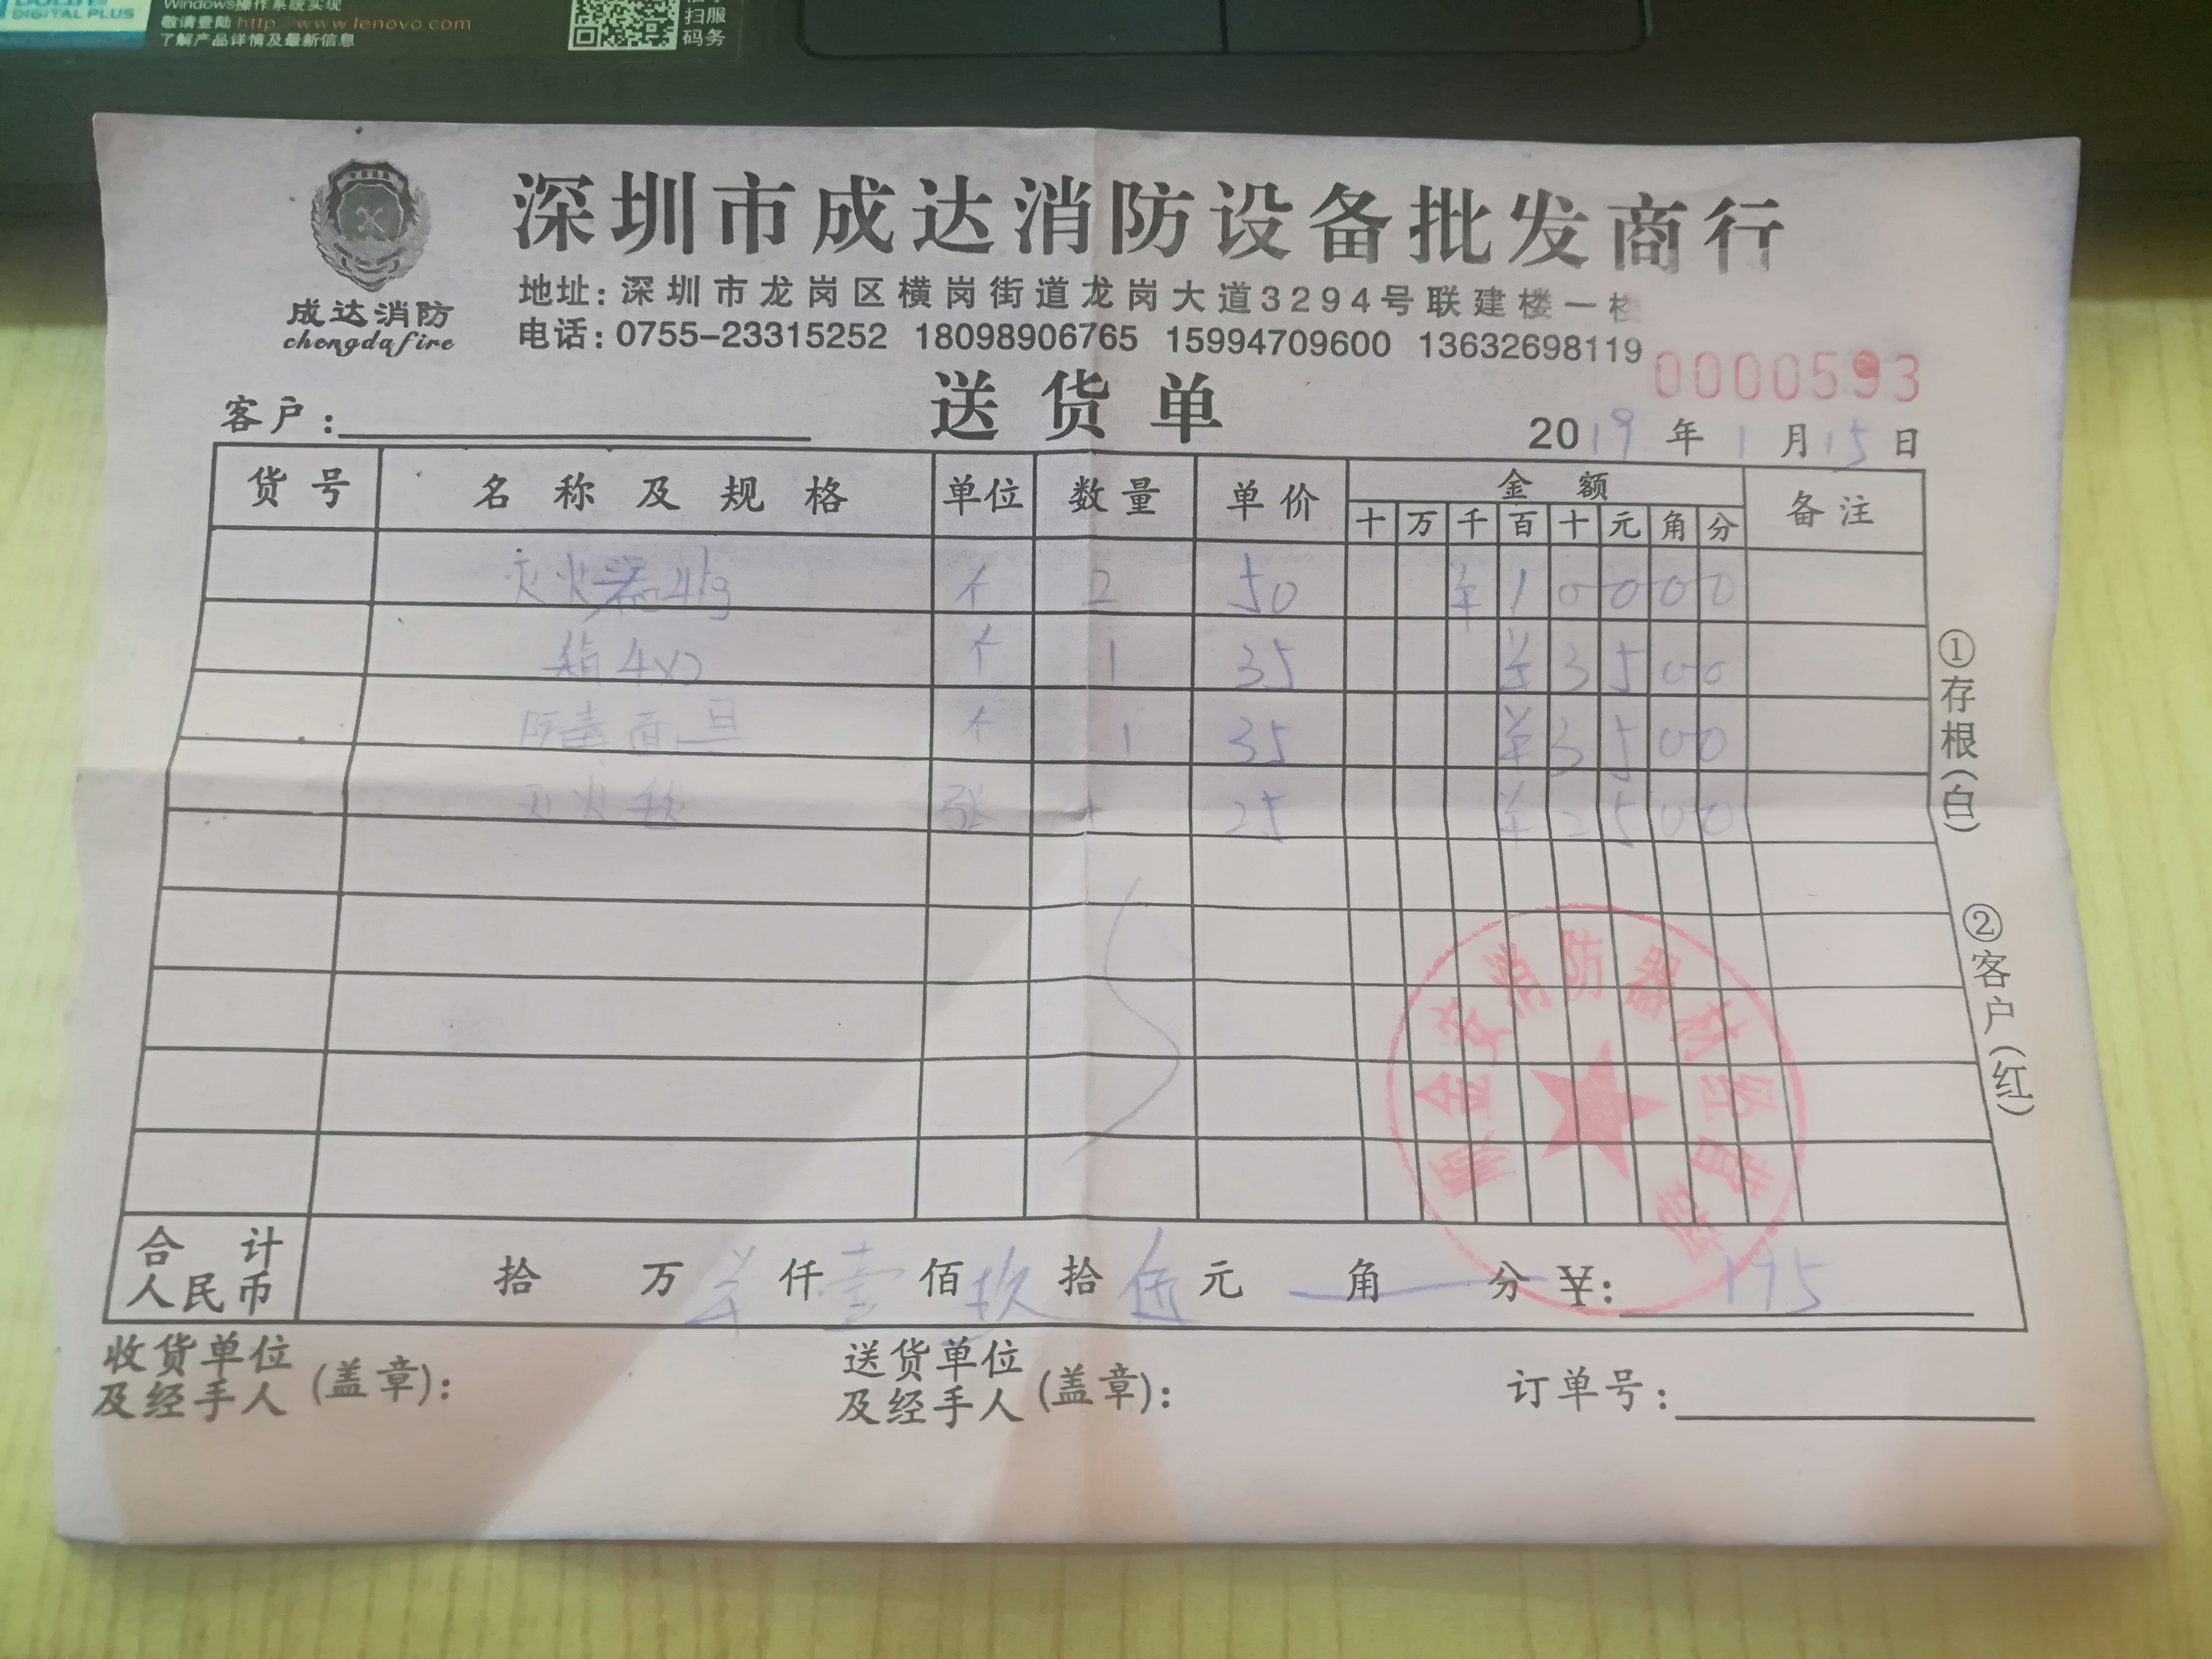 DIGITAL PLUS
Windows操作系统实现
敬请登陆 http://www.lenovo.com
了解产品详情及最新信息
扫服
码务
深圳市成达消防设备批发商行
地址:深圳市龙岗区横岗街道龙岗大道3294号联建楼一楼
成达消防
chengdafire
电话:0755-23315252 18098906765 15994709600 13632698119
0000593
客户: 送货单
2019年1月15日
货号 名称及规格 单位 数量 单价 金额 备注
十 万 千 百 十 元 角 分
灭火器4kg 个 2 50 ¥10000
箱4x2 个 1 35 ¥3500
防毒面具 个 1 35 ¥3500
灭火毯 张 1 25 ¥2500
①存根(白)
②客户(红)
金安消防器材经营部
合计人民币 拾 万 ¥ 仟 壹 佰 玖 拾 伍 元 角 分 ¥: 195
收货单位及经手人(盖章): 送货单位及经手人(盖章): 订单号: